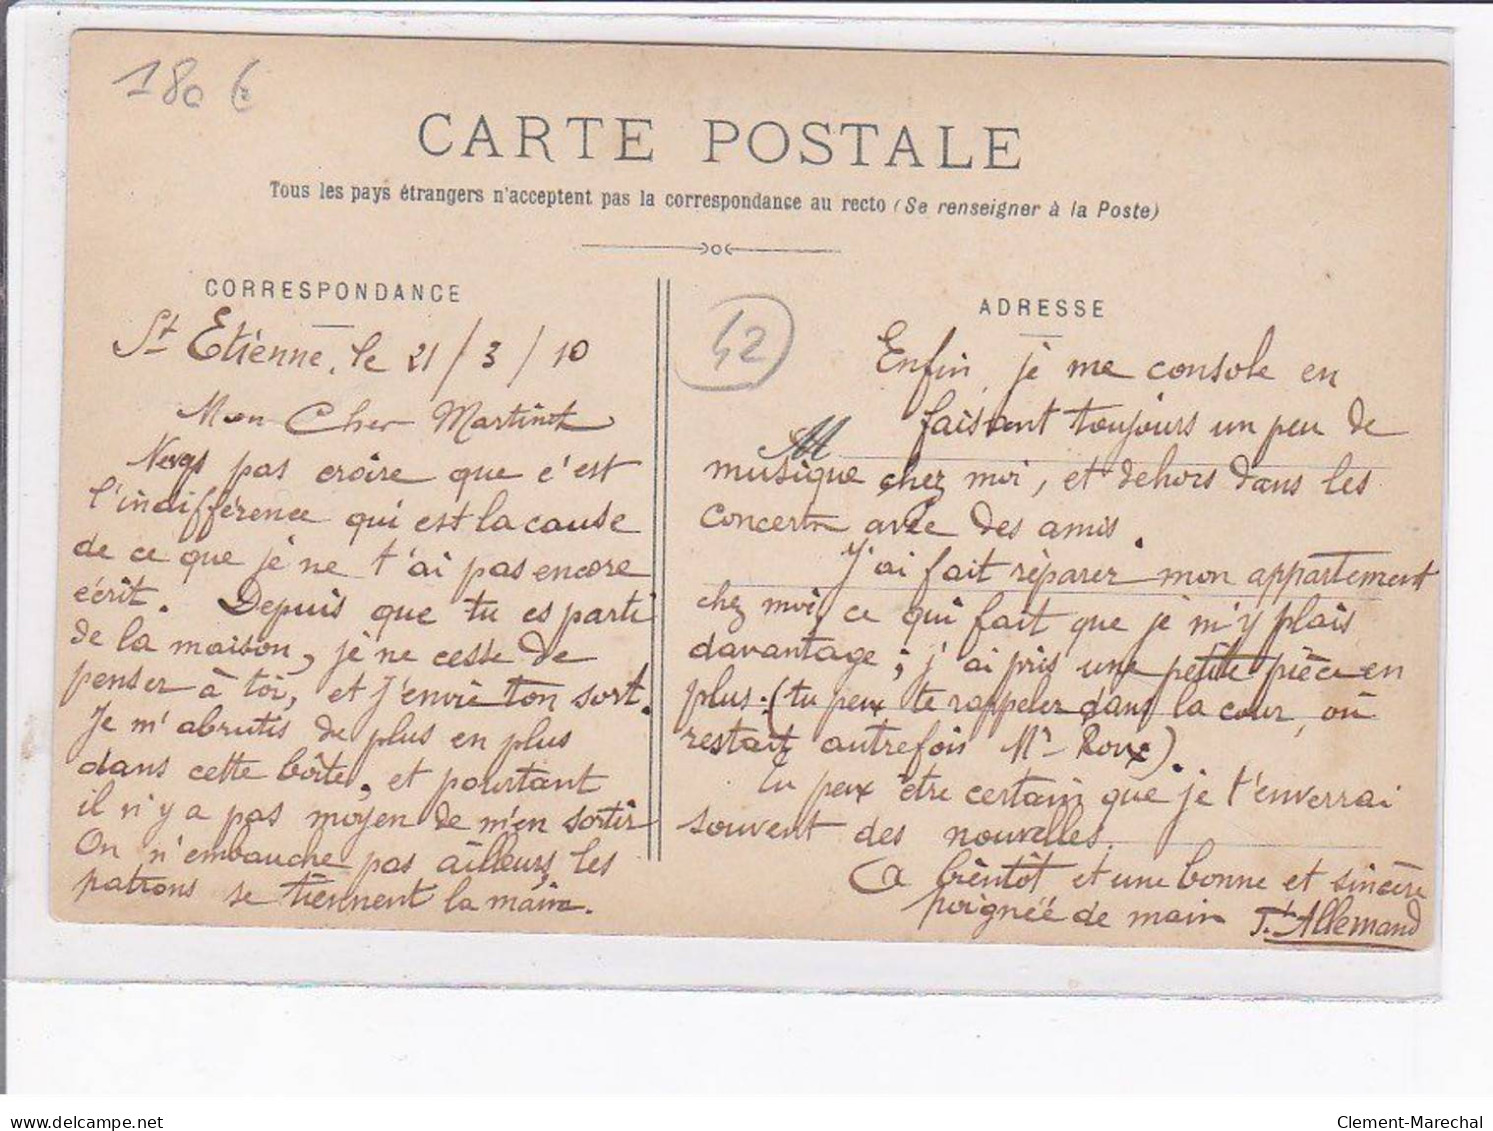 180 €
CARTE POSTALE
Tous les pays étrangers n'acceptent pas la correspondance au recto (Se renseigner à la Poste)
CORRESPONDANCE
St Etienne, le 21/3/10
Mon Cher Martinet
pas croire que c'est
l'indifférence qui est la cause
de ce que je ne t'ai pas encore
écrit. Depuis que tu es parti
de la maison, je ne cesse de
penser à toi, et j'envie ton sort.
Je m'abrutis de plus en plus
dans cette boîte, et pourtant
il n'y a pas moyen de m'en sortir
On n'embauche pas ailleurs, les
patrons se tiennent la main.
42
ADRESSE
Enfin, je me console en
faisant toujours un peu de
musique chez moi, et dehors dans les
concerts avec des amis.
J'ai fait réparer mon appartement
chez moi, ce qui fait que je m'y plais
davantage; j'ai pris une petite pièce en
plus. (tu peux te rappeler dans la cour, où
restait autrefois Mr Roux).
Tu peux être certain que je t'enverrai
souvent des nouvelles.
A bientôt et une bonne et sincère
poignéé de main Allemand
Clement-Marechal
www.delcampe.net